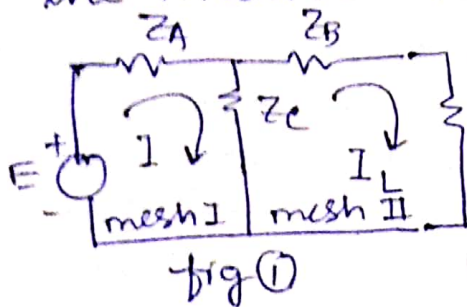 ZA ZB
+
E I Zc I L
-
mesh I mesh II
fig ①